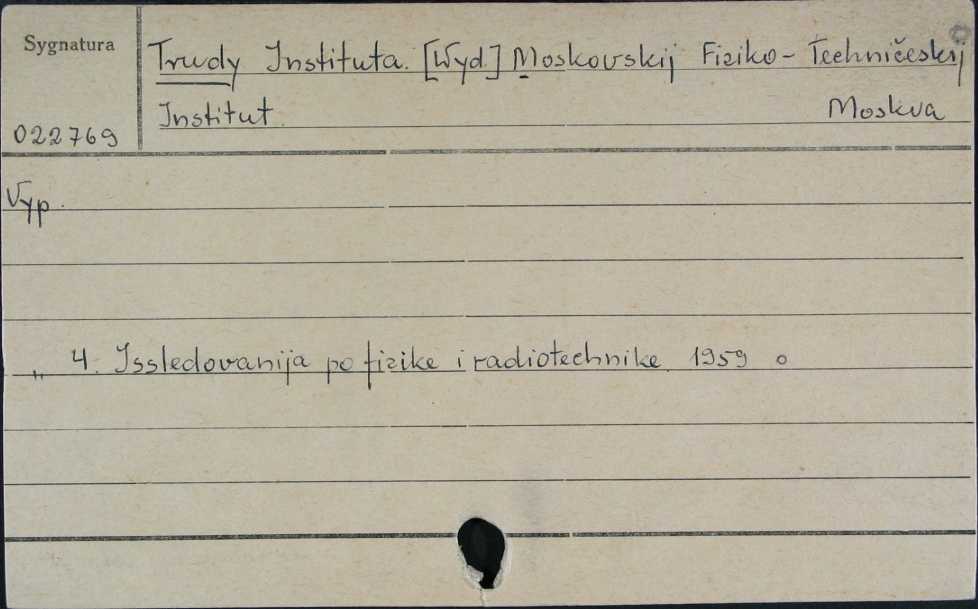 Sygnatura
Trudy Instituta. [Wyd.] Moskovskij Fiziko-Techničeskij
Institut. Moskva
022769
Vyp.
„ 4. Issledovanija po fizike i radiotechnike. 1959 o